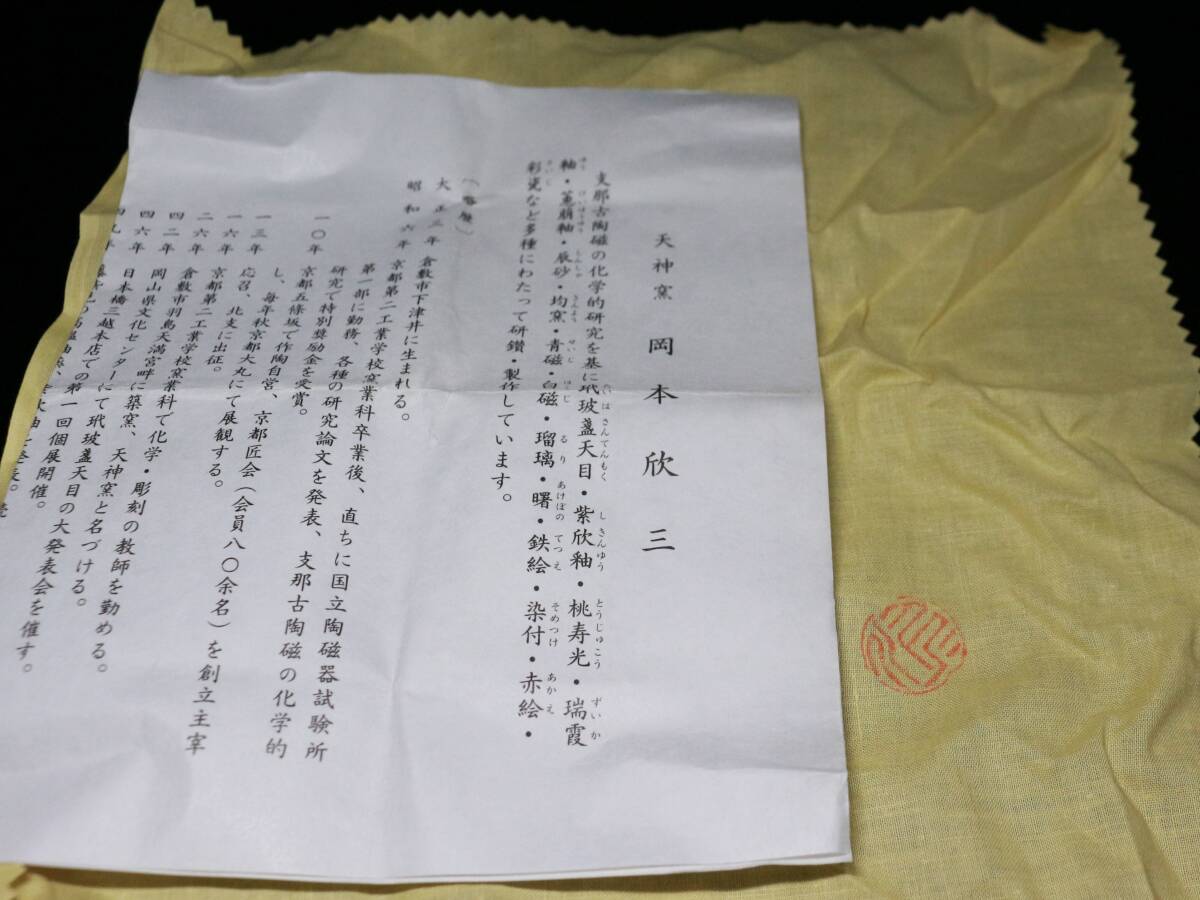 天神窯 岡本欣三
支那古陶磁の化学的研究を基に玳玻盞天目・紫欣釉・桃寿光・瑞霞
釉・葱萠釉・辰砂・均窯・青磁・白磁・瑠璃・曙・鉄絵・染付・赤絵・
彩瓷など多種にわたって研鑽・製作しています。
(略歴)
大正三年 倉敷市下津井に生まれる。
昭和六年 京都第二工業学校窯業科卒業後、直ちに国立陶磁器試験所
第一部に勤務、各種の研究論文を発表、支那古陶磁の化学的
研究で特別奨励金を受賞。
一〇年 京都五條坂で作陶自営、京都匠会(会員八〇余名)を創立主宰
し、毎年秋京都大丸にて展観する。
一三年 応召、北支に出征。
一六年 京都第二工業学校窯業科で化学・彫刻の教師を勤める。
二六年 倉敷市羽島天満宮畔に築窯、天神窯と名づける。
四二年 岡山県文化センターにて玳玻盞天目の大発表会を催す。
四六年 日本橋三越本店での第一回個展開催。
四九年